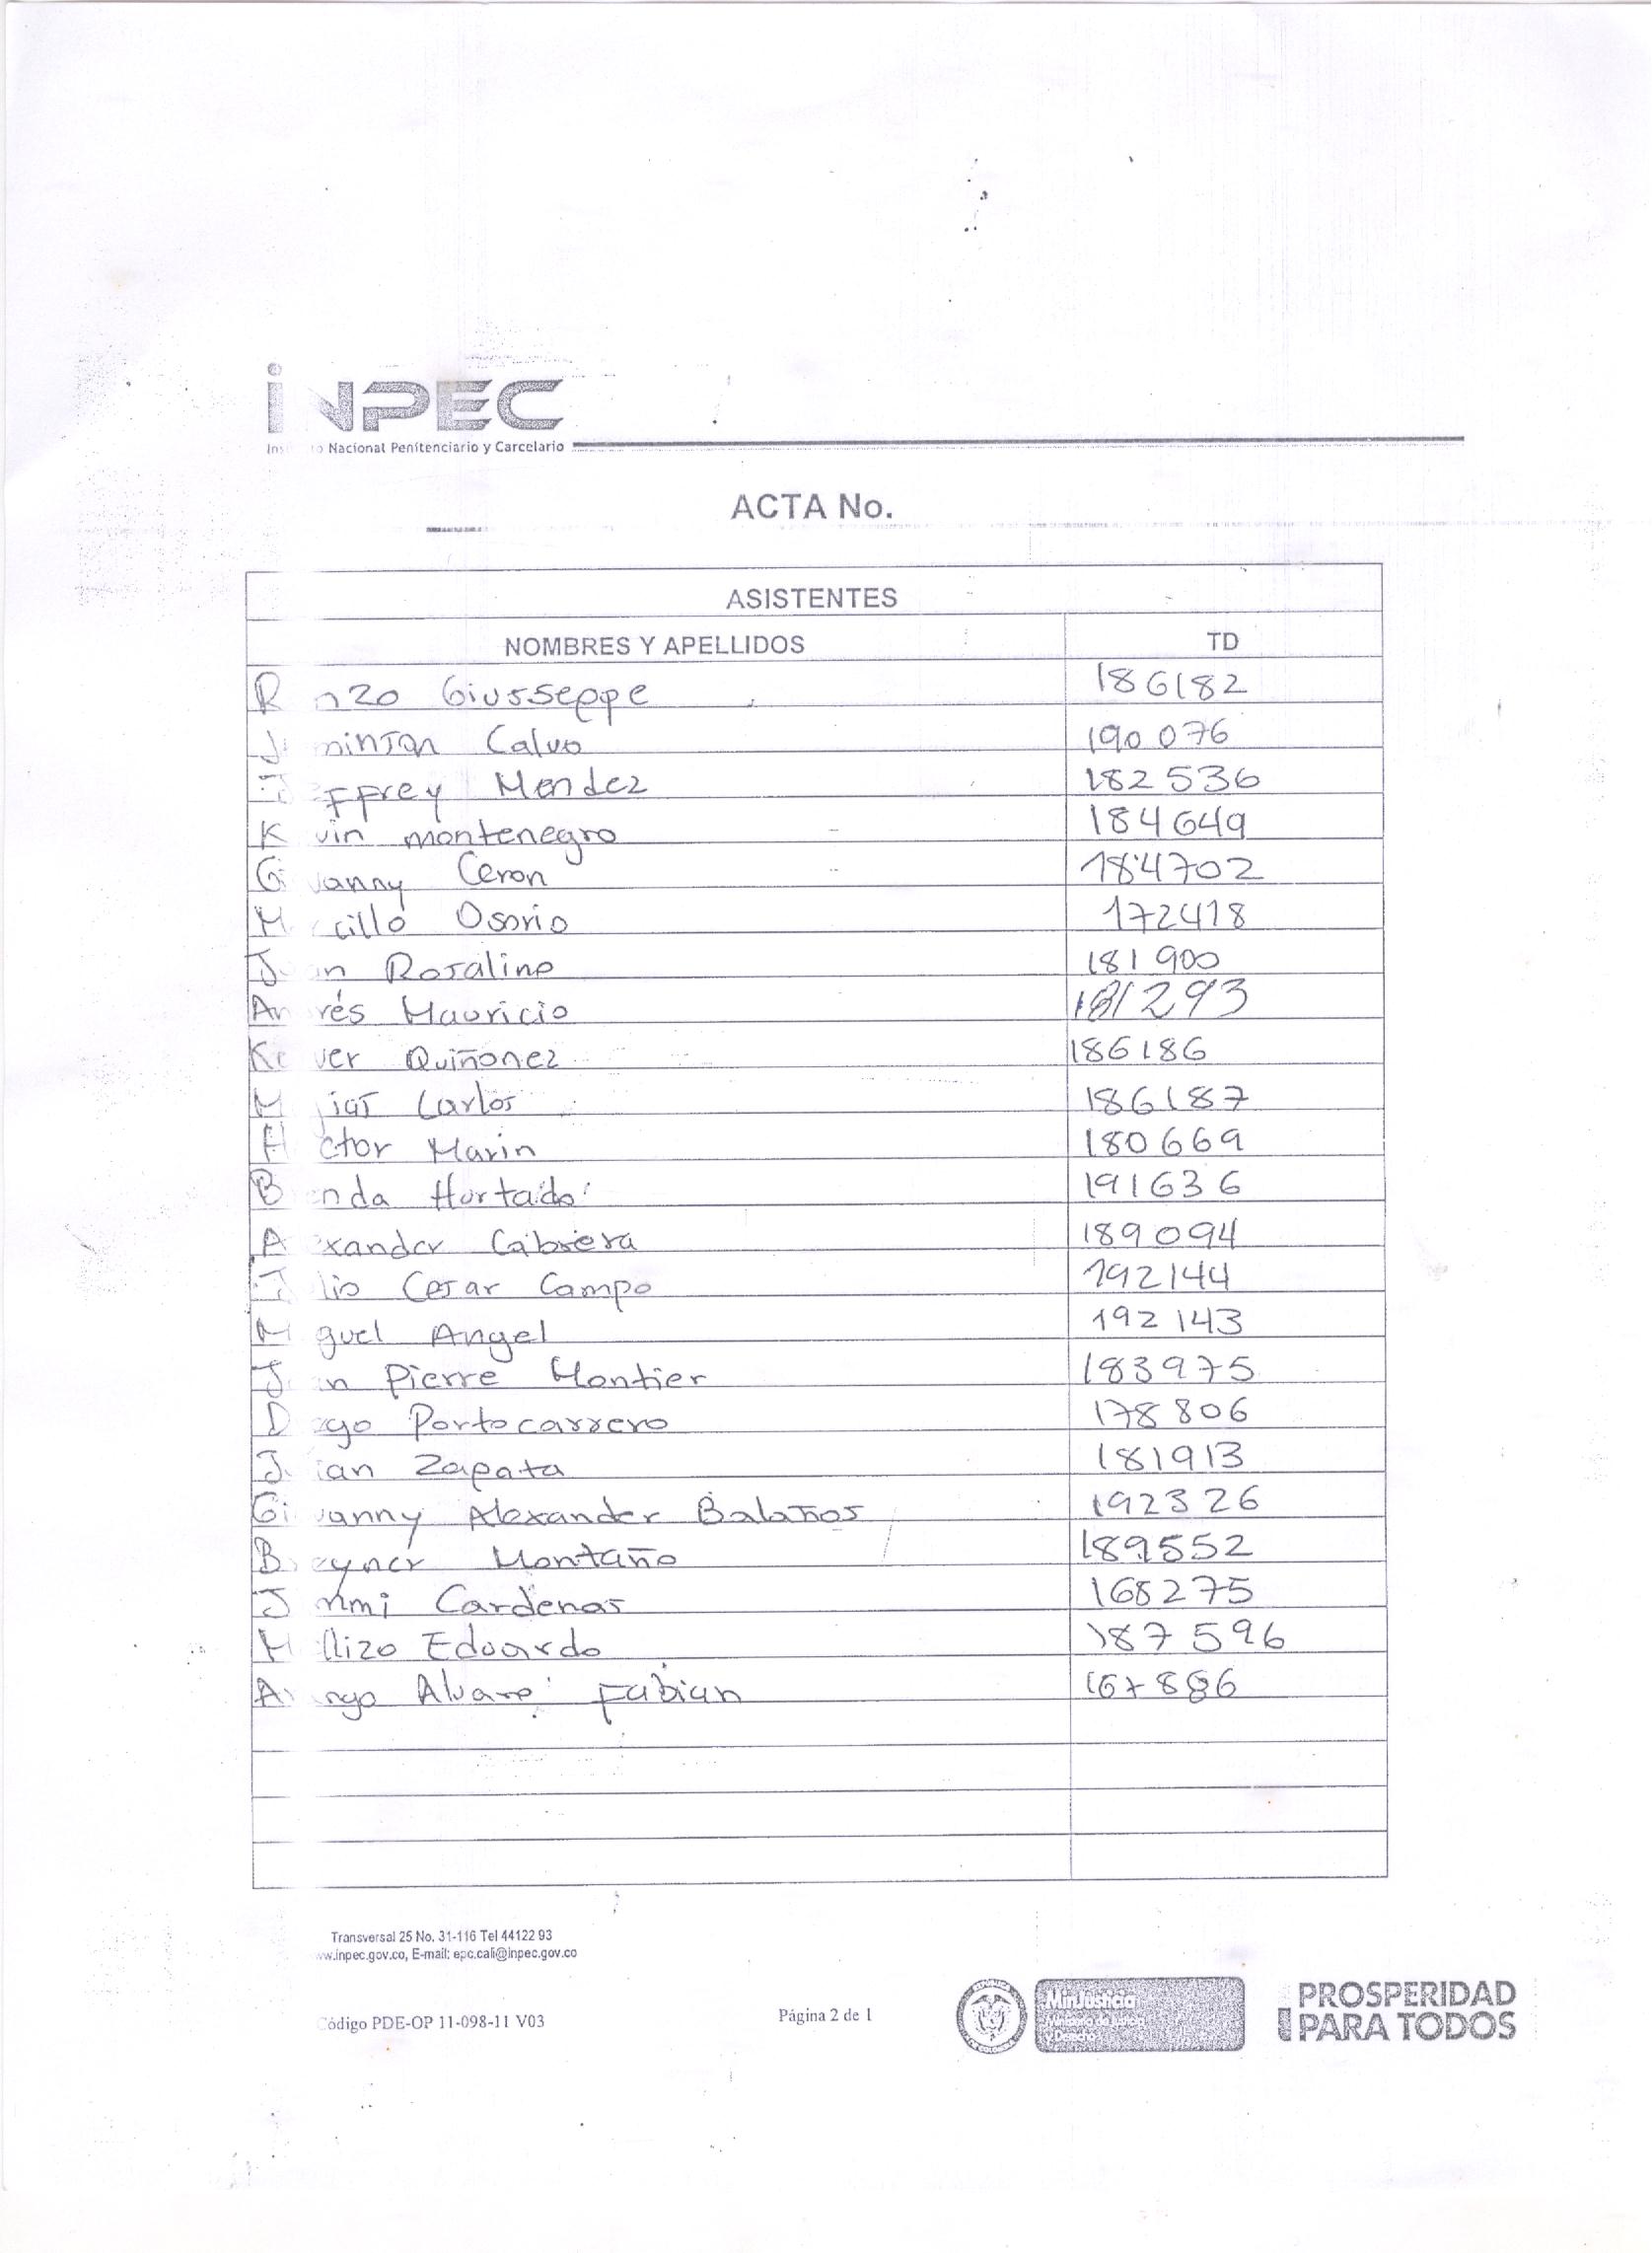 INPEC
Nacional Penitenciario y Carcelario
ACTA No.
ASISTENTES
NOMBRES Y APELLIDOS TD
Giusseppe 186182
Calvo 190076
Mendez 182536
montenegro 184649
Ceron 184702
Osorio 172418
Rosalino 181900
Mauricio 181293
Quiñonez 186186
Carlos 186187
Marin 180669
Hurtado 191636
Cabrera 189094
Cesar Campo 192144
Angel 192143
Pierre Montier 183975
Portocarrero 178806
Zapata 181913
Alexander Bolaños 192326
Montaño 189552
Cardenas 168275
Eduardo 187596
Alvaro fabian
Transversal 25 No. 31-116 Tel 44122 93
w.inpec.gov.co, E-mail; epc.cali@inpec.gov.co
Código PDE-OP 11-098-11 V03
Página 2 de 1
MinJusticia
Ministerio de Justicia
y Derecho
PROSPERIDAD
PARA TODOS